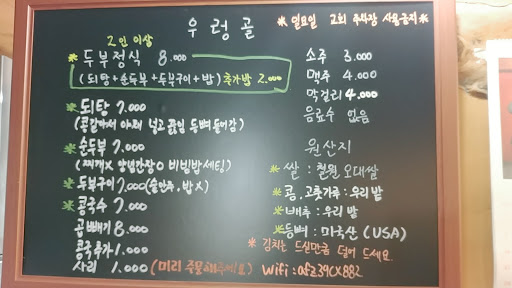 우렁골
* 일요일 교회 주차장 사용금지 *
2인 이상
두부정식 8.000
(되탕+순두부+두부구이+밥) 추가밥 2.000
* 되탕 7.000
(콩갈아서 야채 넣고 끓임 등뼈 들어감)
* 순두부 7.000
(찌개X 양념간장O 비빔밥세팅)
* 두부구이 7.000 (술안주, 밥X)
* 콩국수 7.000
곱빼기 8.000
콩국추가 1.000
사리 1.000 (미리 주문해주세요)
소주 3.000
맥주 4.000
막걸리 4.000
음료수 없음
원산지
* 쌀 : 철원 오대쌀
* 콩, 고춧가루 : 우리밭
* 배추 : 우리 밭
* 등뼈 : 미국산 (USA)
* 김치는 드실만큼 덜어 드세요.
Wifi : afz39cx882